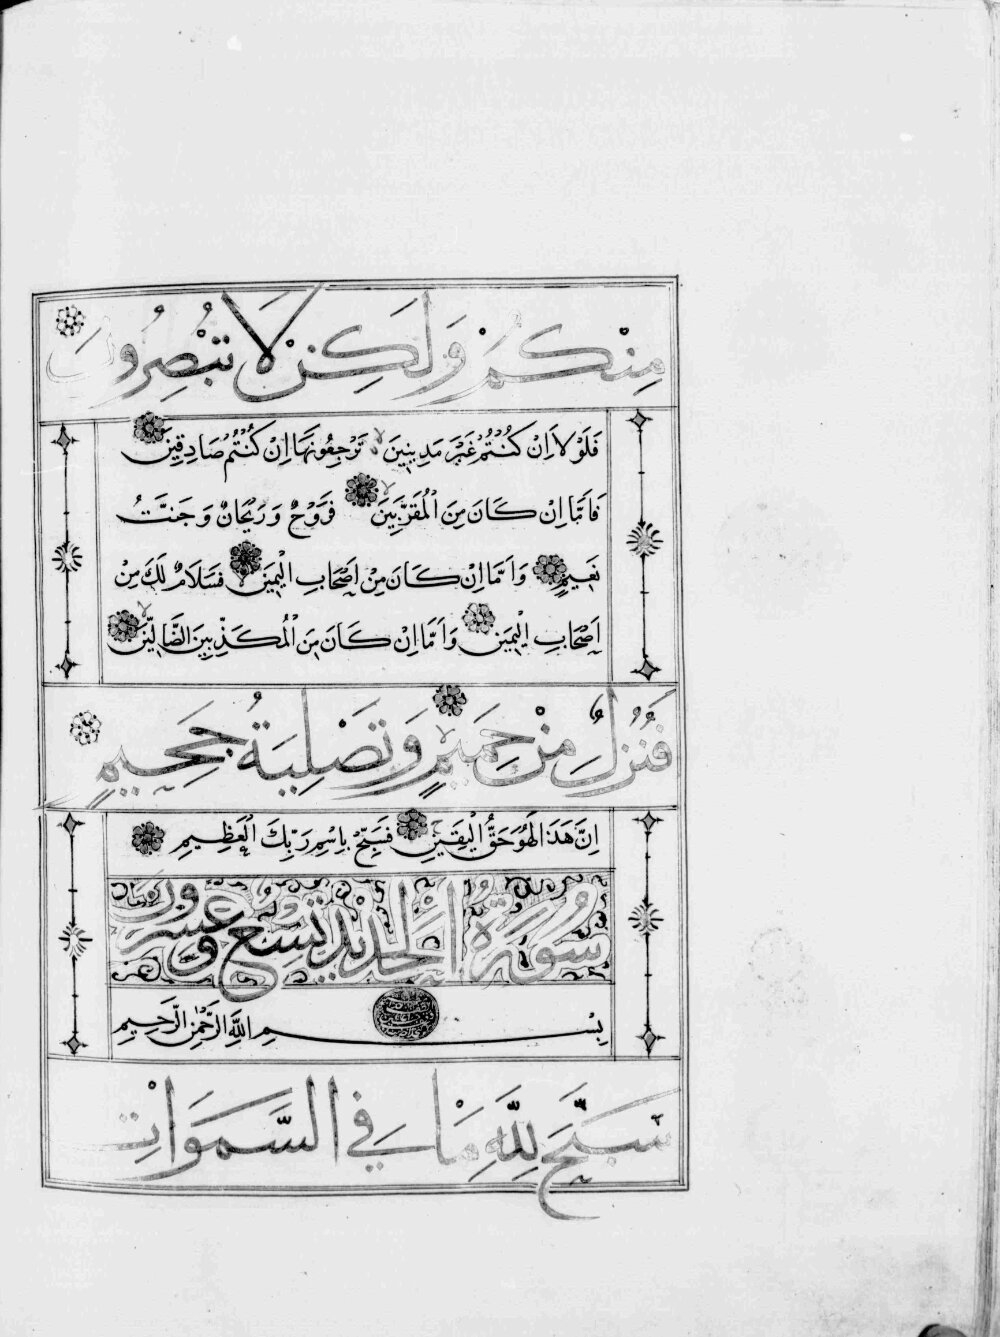 مِنْكُمْ وَلَكِنْ لَا تُبْصِرُونَ
فَلَوْلَا اِنْ كُنْتُمْ غَيْرَ مَدِينِينَ لا تَرْجِعُونَهَا اِنْ كُنْتُمْ صَادِقِينَ
فَاَمَّا اِنْ كَانَ مِنَ الْمُقَرَّبِينَ لا فَرَوْحٌ وَرَيْحَانٌ وَجَنَّتُ
نَعِيمٍ وَاَمَّا اِنْ كَانَ مِنْ اَصْحَابِ الْيَمِينِ فَسَلَامٌ لَكَ مِنْ
اَصْحَابِ الْيَمِينِ وَاَمَّا اِنْ كَانَ مِنَ الْمُكَذِّبِينَ الضَّالِّينَ لا
فَنُزُلٌ مِنْ حَمِيمٍ لا وَتَصْلِيَةُ جَحِيمٍ
اِنَّ هَذَا لَهُوَ حَقُّ الْيَقِينِ فَسَبِّحْ بِاسْمِ رَبِّكَ الْعَظِيمِ
سُورَةُ الْحَدِيدِ تِسْعٌ وَعِشْرُونَ
بِسْمِ اللَّهِ الرَّحْمَنِ الرَّحِيمِ
سَبَّحَ لِلَّهِ مَا فِي السَّمَوَاتِ